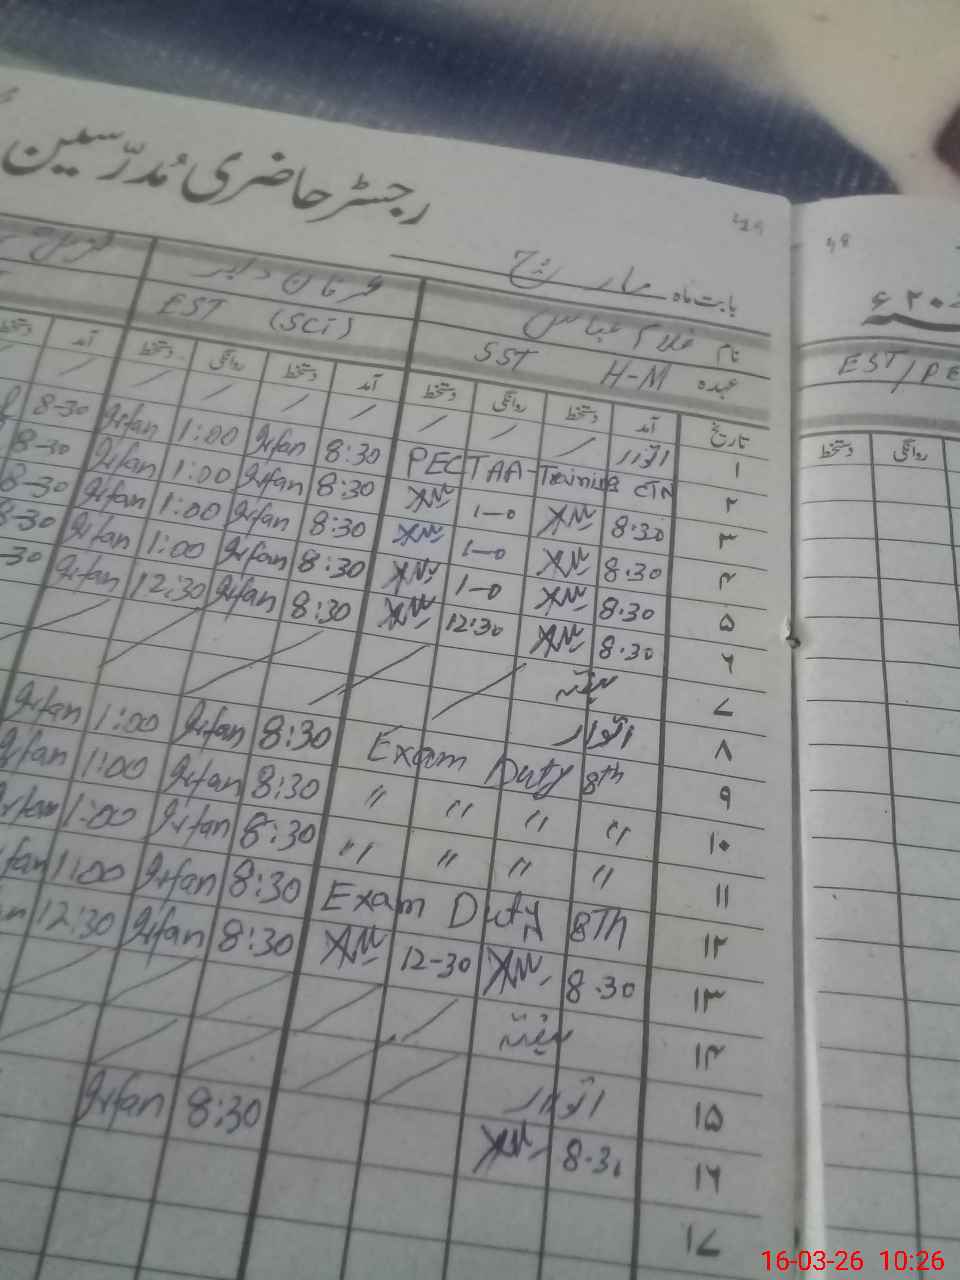 رجسٹر حاضری مُدرّسین
بابت ماہ مارچ
۲۰ ء
نام غلام عباس
عہدہ H-M SST
EST (SCi)
EST/PE
تاریخ آمد دستخط روانگی دستخط آمد دستخط روانگی دستخط آمد دستخط
روانگی دستخط
۱ اتوار / / / / / / / /
۲ PECTAA-Training CTN 8:30 Irfan 1:00 Irfan 8-30
۳ 8.30 1-0 8:30 Irfan 1:00 Irfan 8-30
۴ 8.30 1-0 8:30 Irfan 1:00 Irfan 8-30
۵ 8.30 1-0 8:30 Irfan 1:00 Irfan 8-30
۶ 8.30 12:30 8:30 Irfan 12:30 Irfan -30
۷ ہفتہ
۸ اتوار
۹ Exam Duty 8th 8:30 Irfan 1:00 Irfan
۱۰ " " " " 8:30 Irfan 1:00 Irfan
۱۱ " " " " 8:30 Irfan 1:00 Irfan
۱۲ Exam Duty 8TH 8:30 Irfan 1:00 fan
۱۳ 8.30 12-30 8:30 Irfan 12:30
۱۴ ہفتہ
۱۵ اتوار
۱۶ 8:30 Irfan
۱۷
16-03-26 10:26